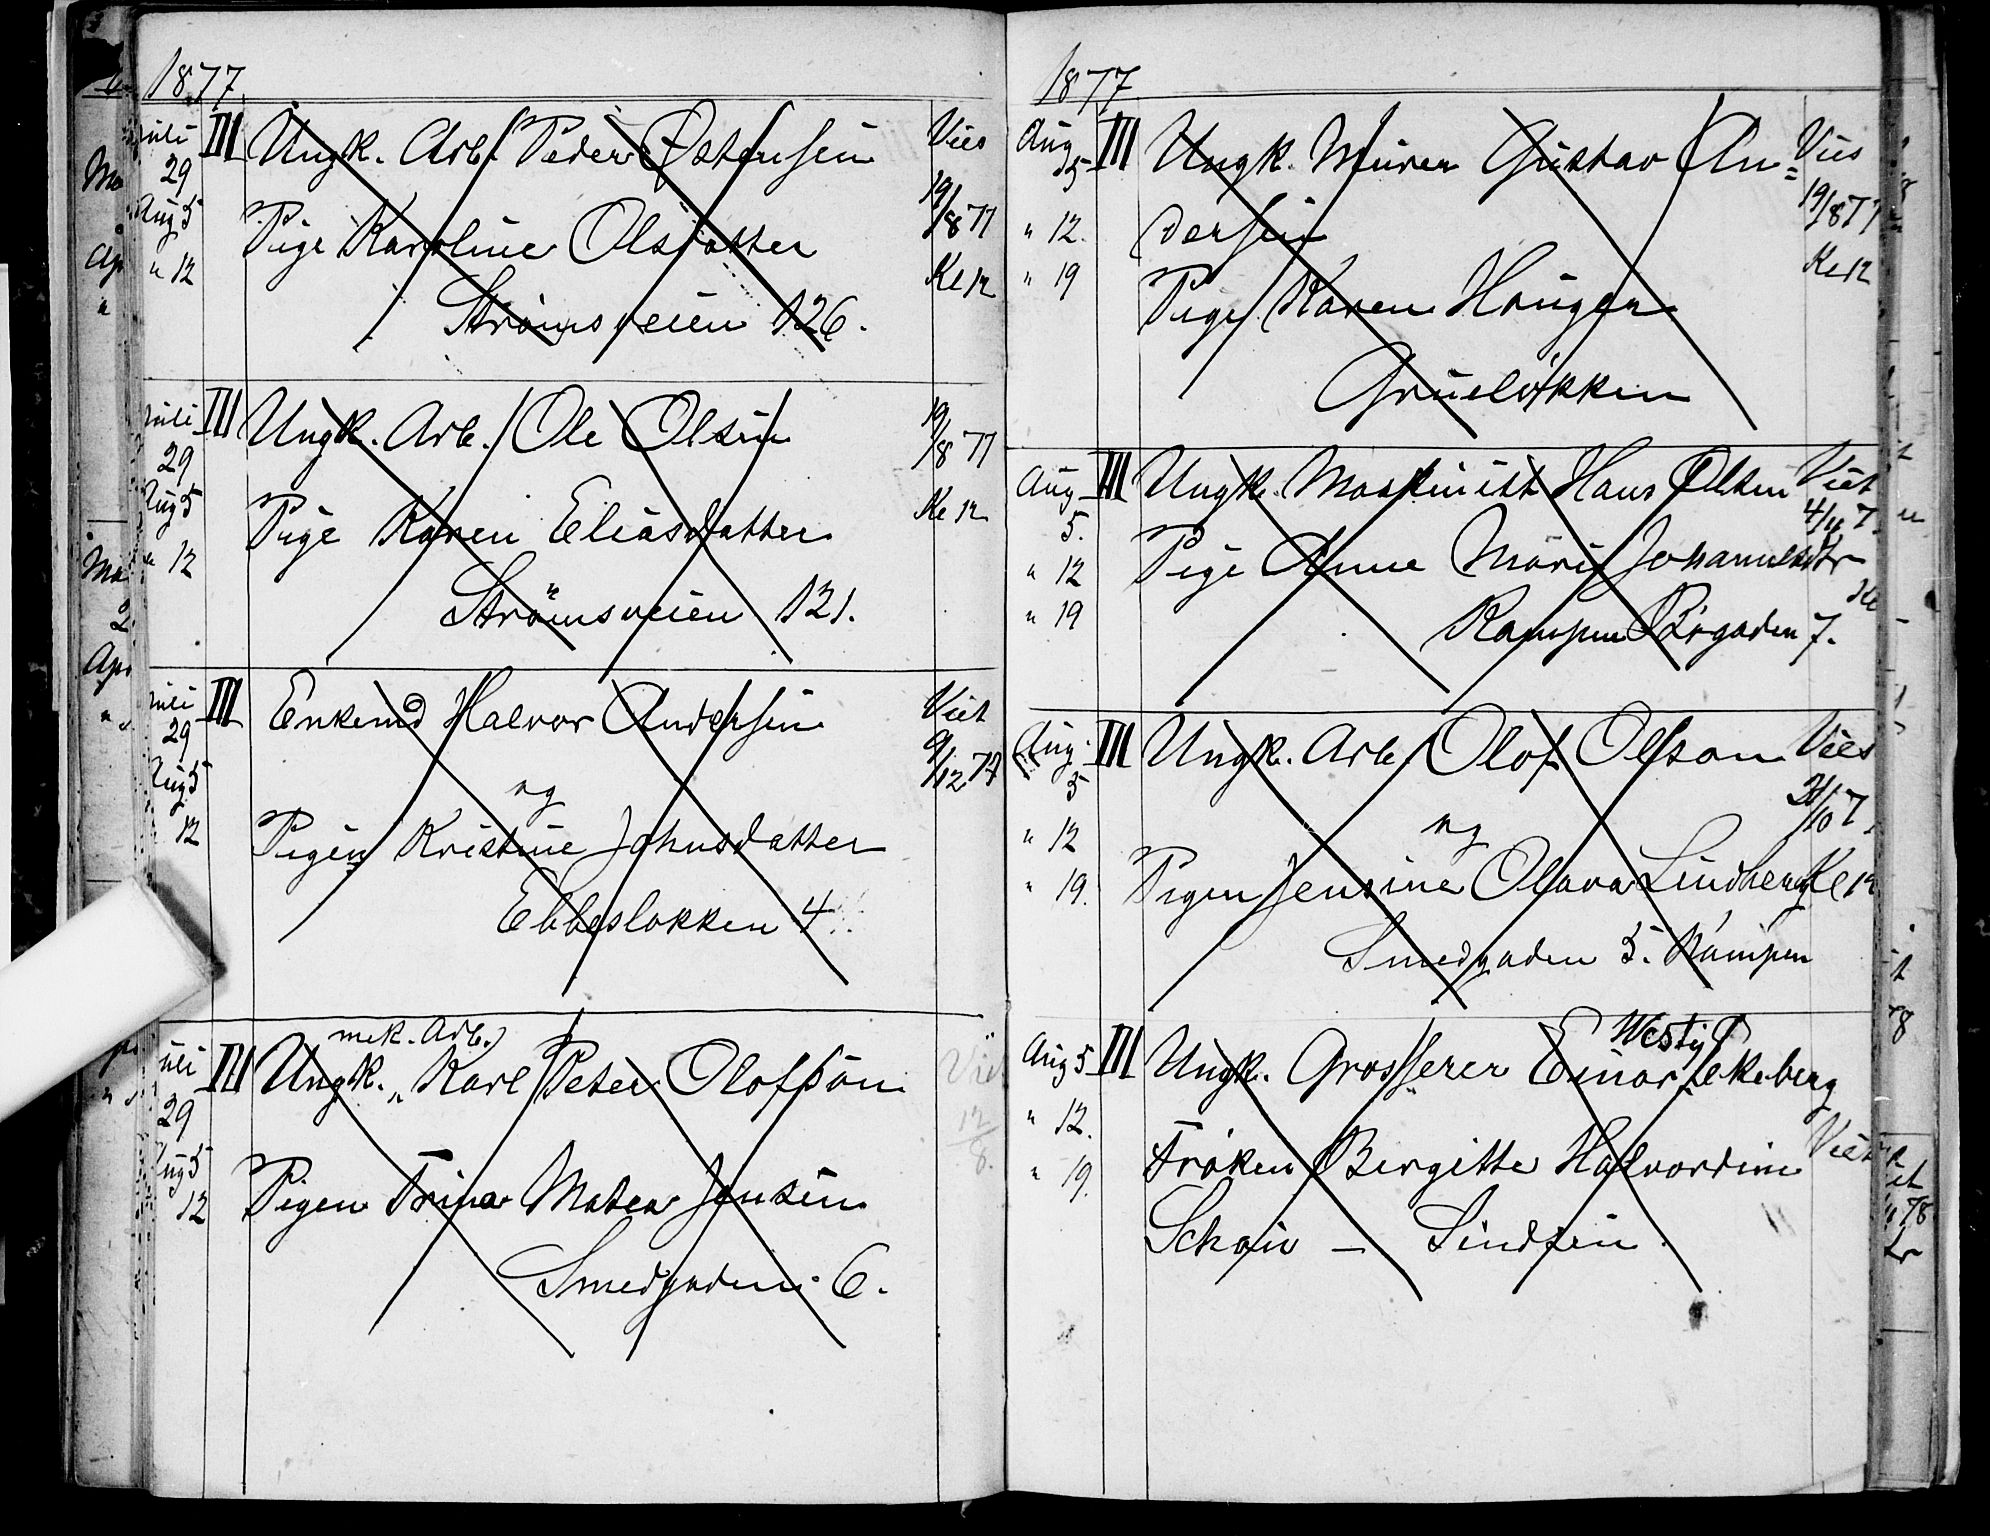 1877.
Juli III Ungk. Arb. Peder Østensen Vies
29 19/8 77
Aug 5 Pige Karoline Olsdatter
" 12 Kl 12
Strømsveien 126.
Juli III Ungk. Arb. Ole Olsen 19/8 77
29
Aug 5 Pige Karen Eliasdatter Kl 12
" 12
Strömsveien 121.
Juli III Enkemd Halvor Andersen Viet
29 9/12 77
Aug 5 og
12 Pigen Kristine Johnsdatter
Ebbesløkken 4
mek. Arb.
Juli III Ungk. " Karl Peter Olofsson Viet
29 12/8.
Aug 5 Pigen Trina Matea Jensen
12
Smedgaden 6.
1877
Aug III Ungk. Murer Gustav An= Vies
5 19/8 77
" 12. dersen
" 19 Kl 12
Pige Karen Haugen
Grueløkken
Aug III Ungk. Maskinist Hans Olsen Viet
5. 4/11 7
" 12 Pige Anne Marie Johannesdtr
" 19 Kl
Kampen Bøgaden 7.
Aug. III Ungk. Arb. Olof Olsson Vies
5 21/10 7
" 12 og
" 19. Pigen Jensine Olava Lindberg Kl 12
Smedgaden 5. Kampen
Westye
Aug 5 III Ungk. Grosserer Einar Ekeberg
" 12.
" 19. Frøken Birgitte Halvordine Viet
Schøin — Lindsein.